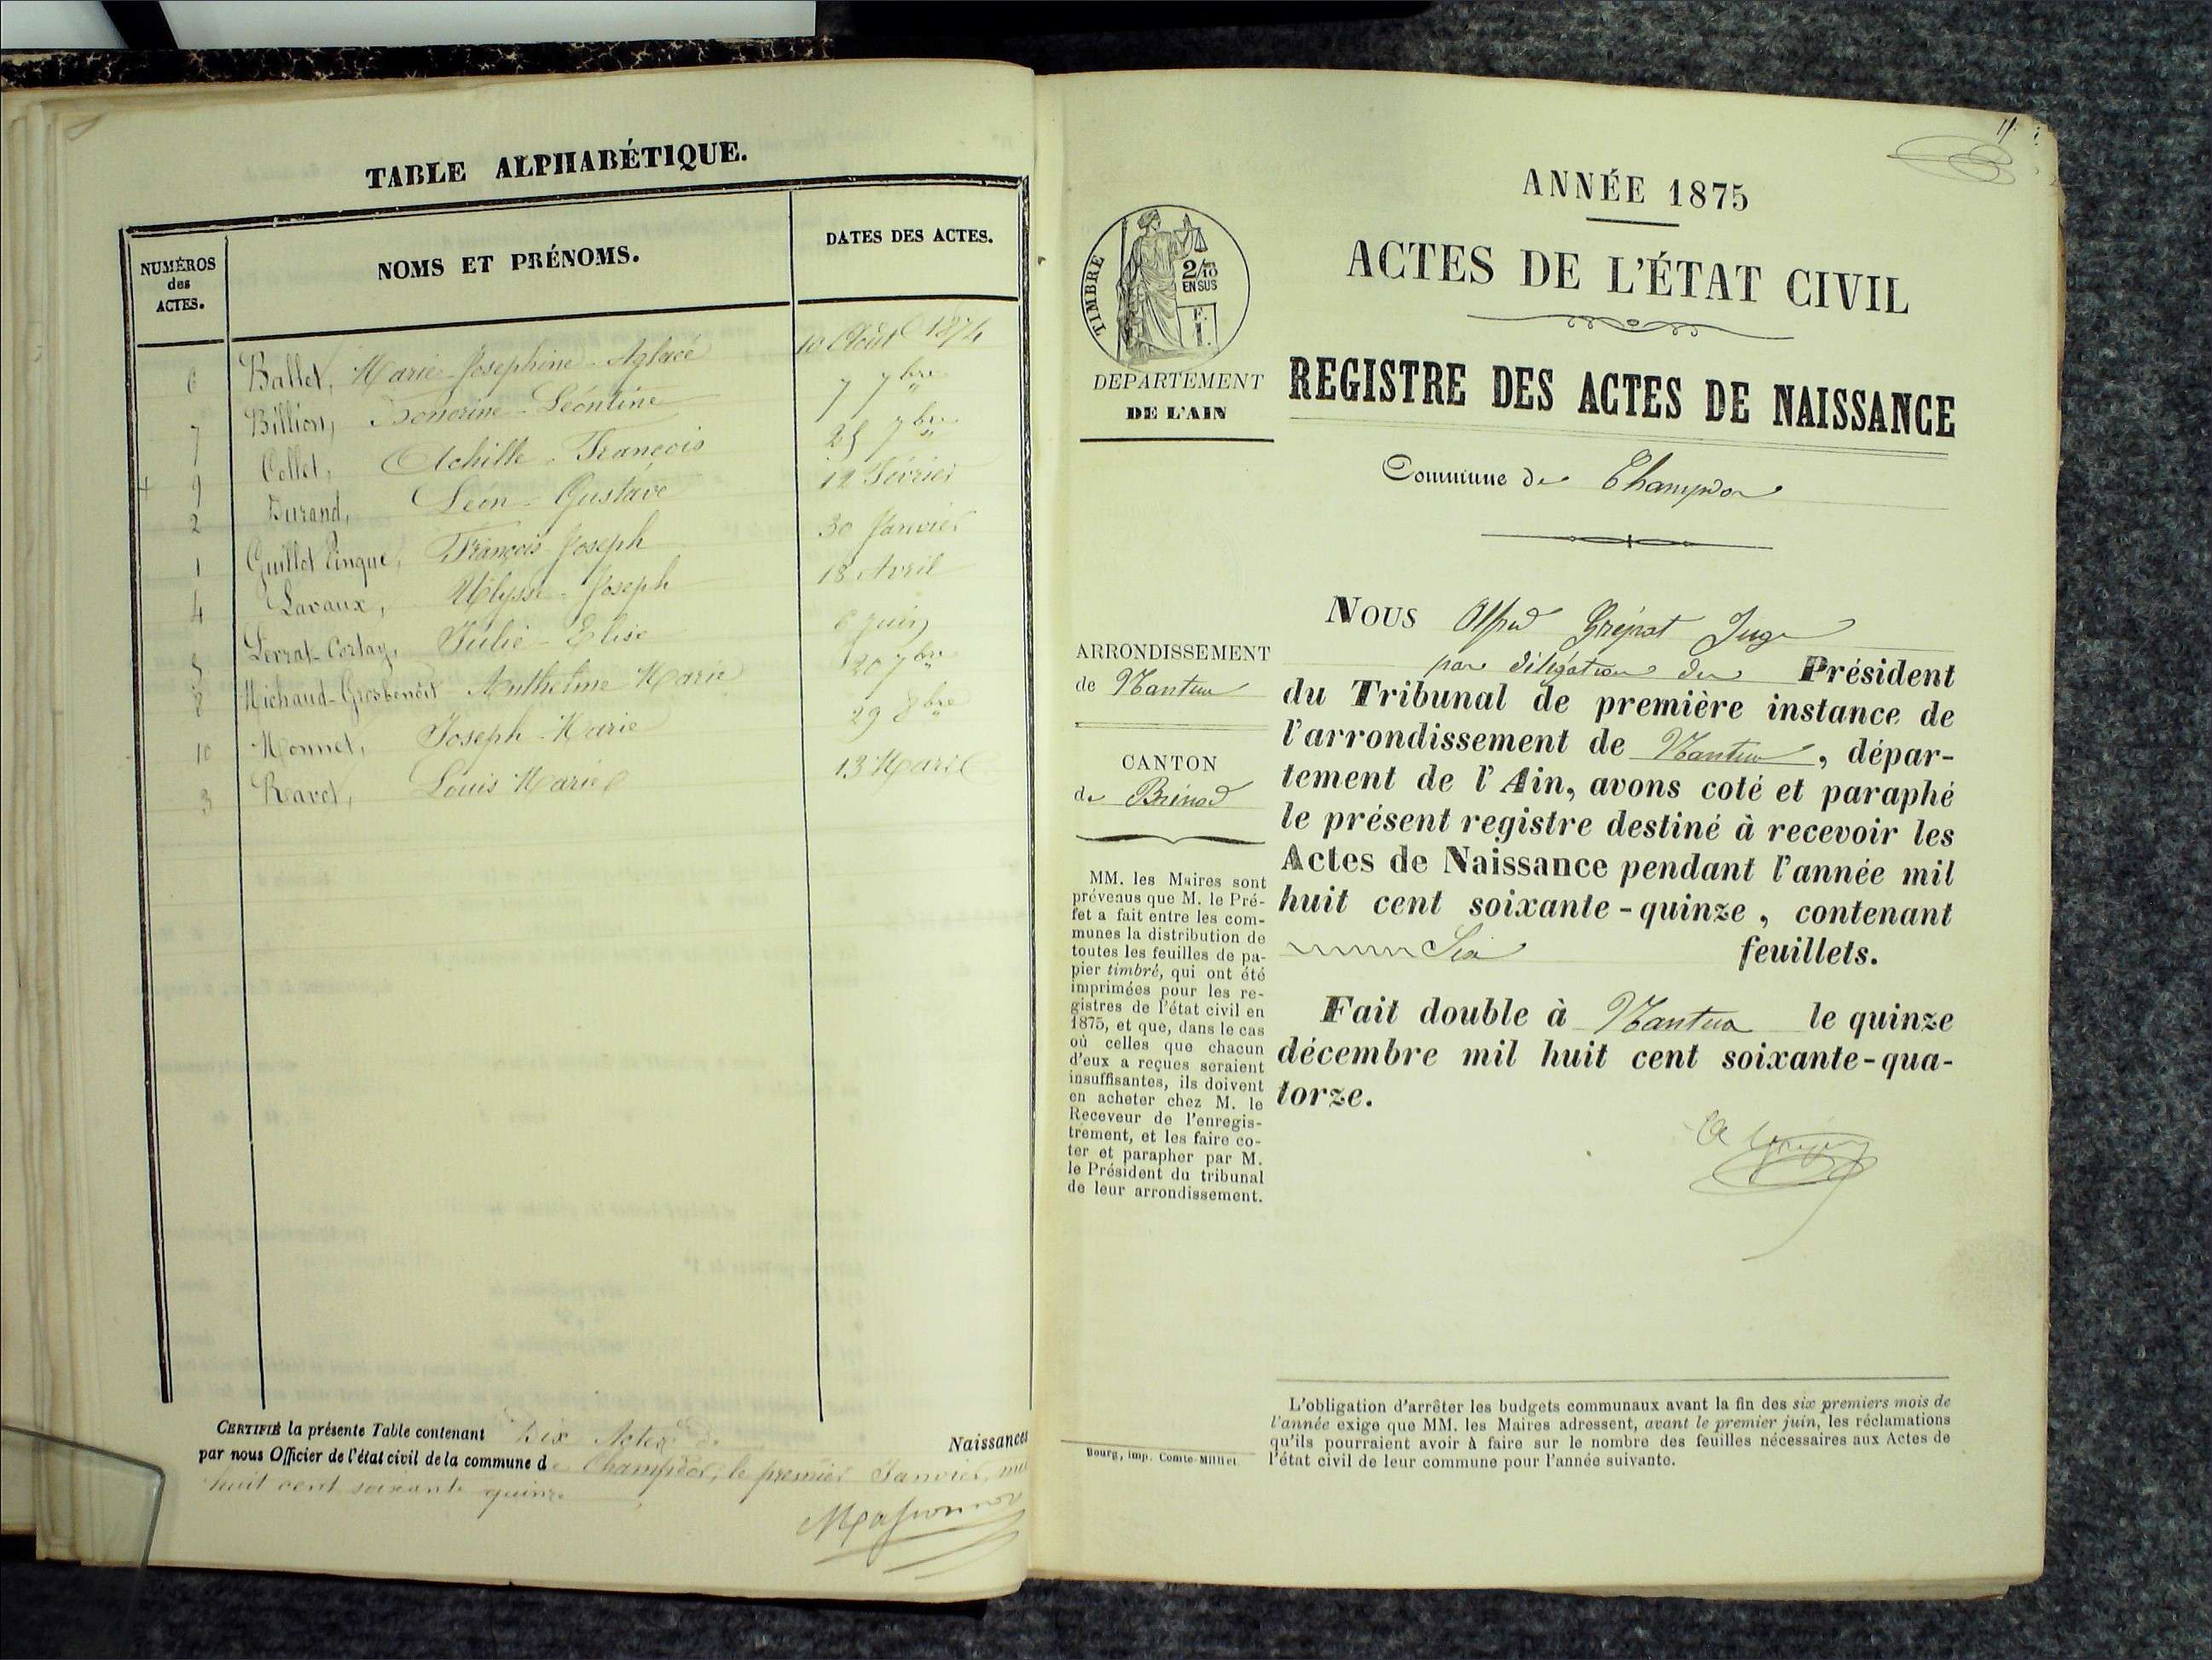 TABLE ALPHABÉTIQUE.
NUMÉROS des ACTES.
NOMS ET PRÉNOMS.
DATES DES ACTES.
6 Ballet, Marie-Josephine-Aglaé 10 Août 1874
7 Billion, Honorine-Léontine 7 7bre
9 Collet, Achille-François 25 7bre
2 Durand, Léon-Gustave 12 Février
1 Guillot Pingue, François-Joseph 30 Janvier
4 Lavaux, Ulysse-Joseph 18 Avril
5 Levrat-Cortay, Julie-Elise 6 juin
8 Michaud-Grosbenoît Anthelme Marie 20 7bre
10 Monnet, Joseph-Marie 29 8bre
3 Ravet, Louis Marie 13 Mars
CERTIFIÉ la présente Table contenant Dix Actes de Naissances
par nous Officier de l'état civil de la commune de Champdor, le premier Janvier mil
huit cent soixante quinze
ANNÉE 1875
ACTES DE L'ÉTAT CIVIL
TIMBRE
2/10 EN SUS
F. 1.
DEPARTEMENT
DE L'AIN
REGISTRE DES ACTES DE NAISSANCE
Commune de Champdor
ARRONDISSEMENT
de Nantua
CANTON
de Brénod
MM. les Maires sont
prévenus que M. le Pré-
fet a fait entre les com-
munes la distribution de
toutes les feuilles de pa-
pier timbré, qui ont été
imprimées pour les re-
gistres de l'état civil en
1875, et que, dans le cas
où celles que chacun
d'eux a reçues seraient
insuffisantes, ils doivent
en acheter chez M. le
Receveur de l'enregis-
trement, et les faire co-
ter et parapher par M.
le Président du tribunal
de leur arrondissement.
NOUS Alfred Grépat Juge
par délégation du Président
du Tribunal de première instance de
l'arrondissement de Nantua, dépar-
tement de l'Ain, avons coté et paraphé
le présent registre destiné à recevoir les
Actes de Naissance pendant l'année mil
huit cent soixante-quinze, contenant
Six feuillets.
Fait double à Nantua le quinze
décembre mil huit cent soixante-qua-
torze.
L'obligation d'arrêter les budgets communaux avant la fin des six premiers mois de
l'année exige que MM. les Maires adressent, avant le premier juin, les réclamations
qu'ils pourraient avoir à faire sur le nombre des feuilles nécessaires aux Actes de
l'état civil de leur commune pour l'année suivante.
Bourg, imp. Comte-Milliet